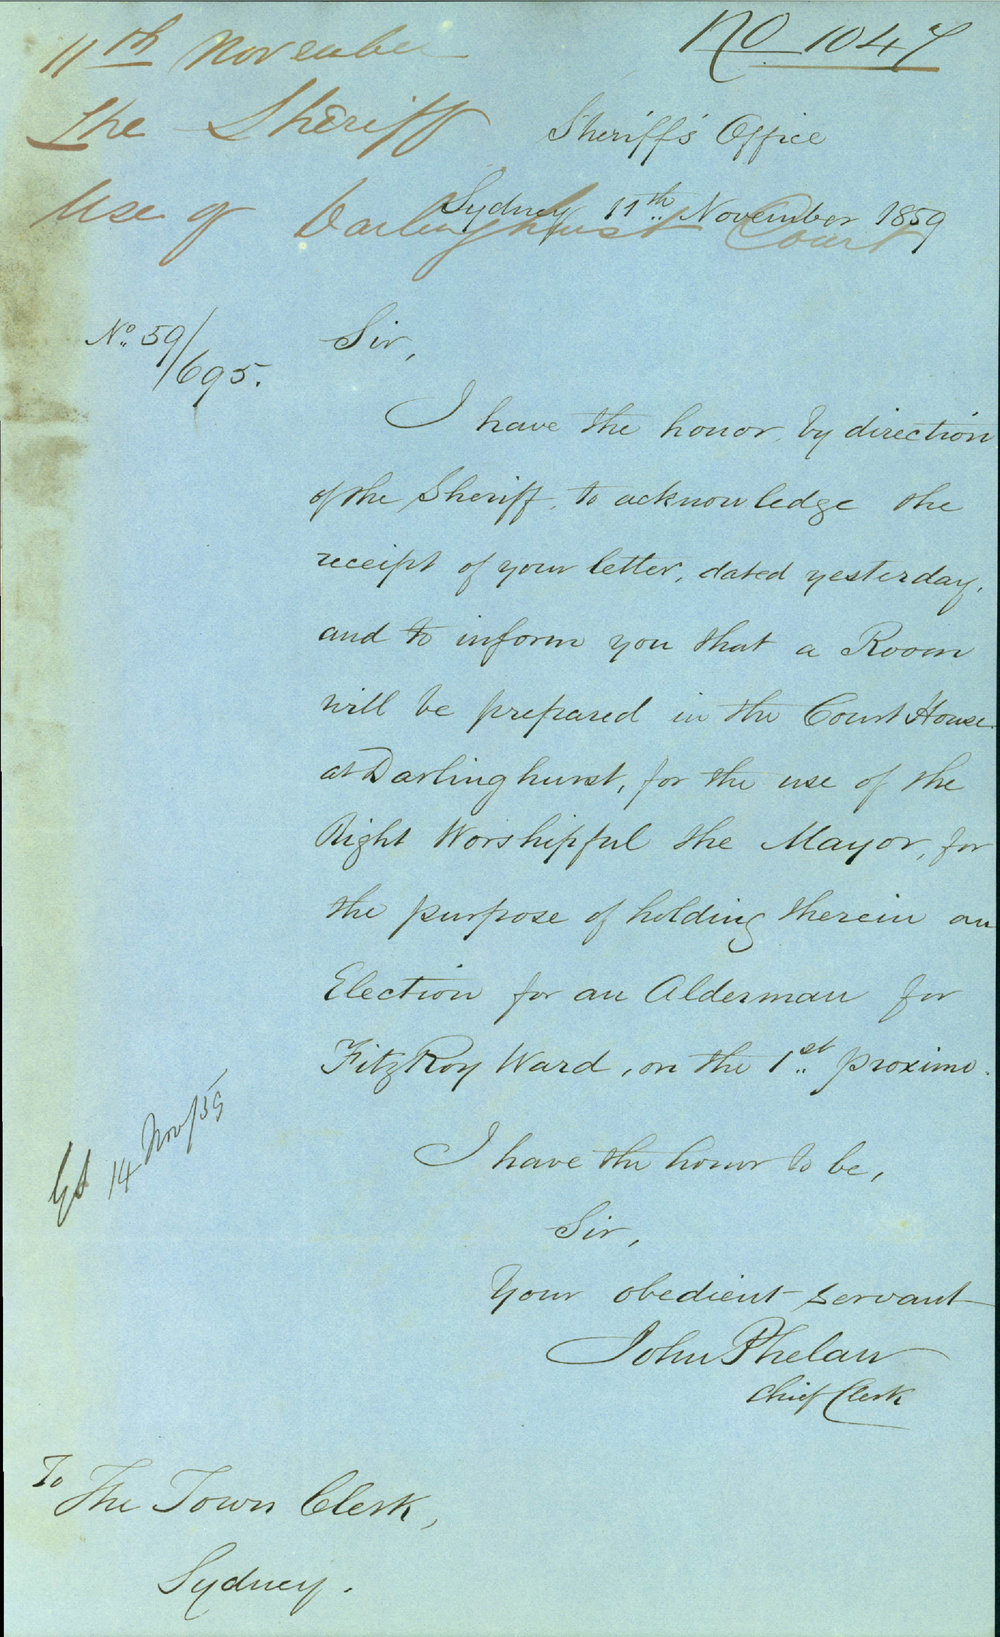 11th November
No 1047
The Sheriff
Sheriff's Office
Use of Darlinghurst Court
Sydney 11th November 1859
No. 59/695.
Sir,
I have the honor, by direction
of the Sheriff, to acknowledge the
receipt of your letter, dated yesterday,
and to inform you that a Room
will be prepared in the Court House
at Darlinghurst, for the use of the
Right Worshipful the Mayor, for
the purpose of holding therein an
Election for an Alderman for
FitzRoy Ward, on the 1st proximo.
I have the honor to be,
Sir,
Your obedient servant
John Phelan
Chief Clerk
14 Nov/59
To
The Town Clerk,
Sydney.